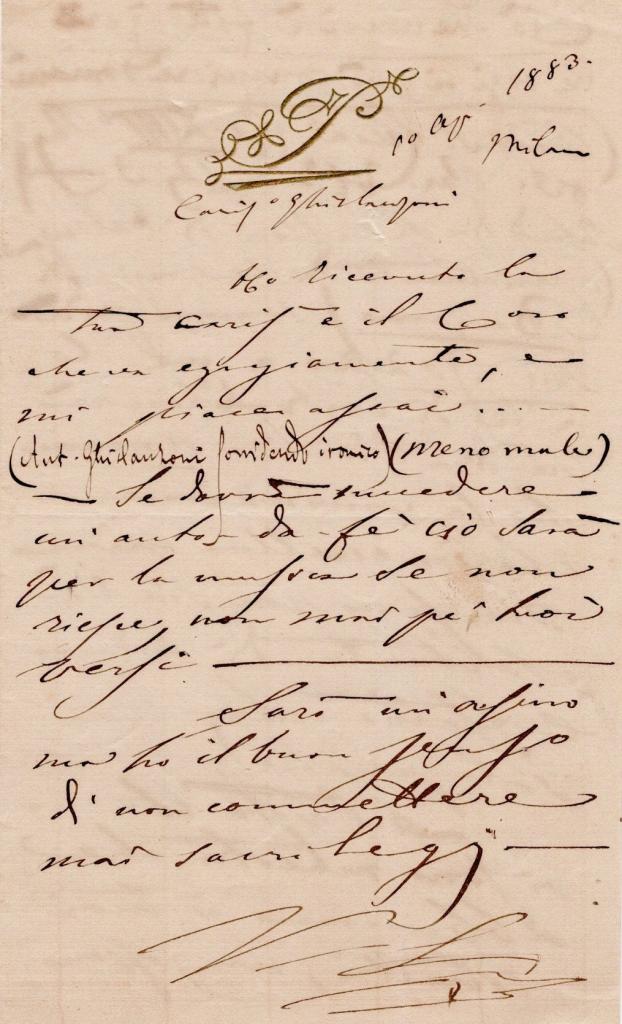 P
1883.
10 Ap.
Milano
Cariso Ghislanzoni
Ho ricevuto la
tua cariss e il Coro
che va egregiamente, e
mi piace assai ... —
(Ant. Ghislanzoni sorridendo ironico) (meno male)
— Se dovrà succedere
un auto-da-fè ciò sarà
per la musica se non
riesce, non mai pe' tuoi
versi —
Sarò un asino
ma ho il buon senso
di non commettere
mai sacrilegj —